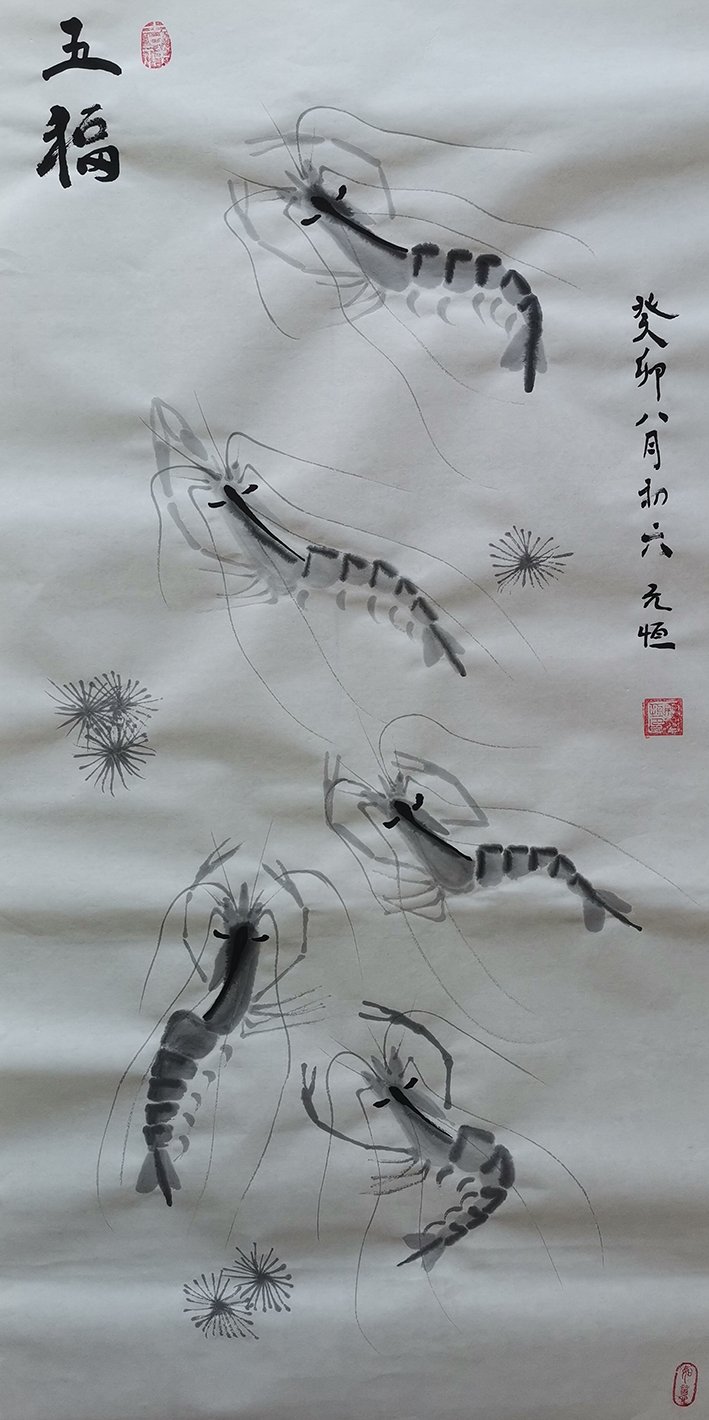 五福
癸卯八月初六 元恒
如意